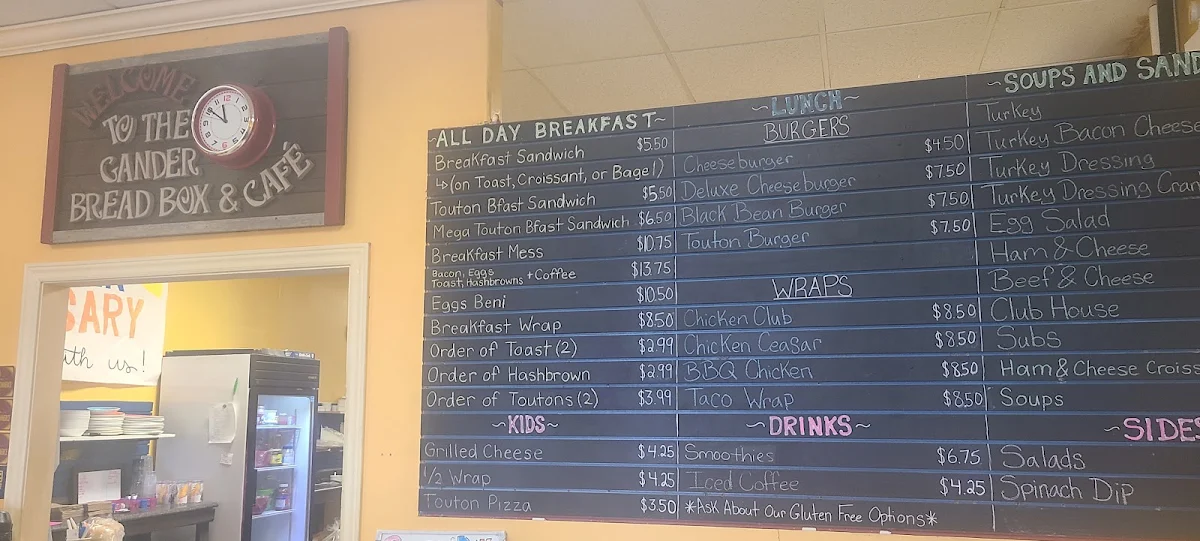 WELCOME
TO THE
GANDER
BREAD BOX & CAFÉ
SARY
with us!
~ALL DAY BREAKFAST~
Breakfast Sandwich $5.50
↳(on Toast, Croissant, or Bagel)
Touton Bfast Sandwich $5.50
Mega Touton Bfast Sandwich $6.50
Breakfast Mess $10.75
Bacon, Eggs
Toast, Hashbrowns + Coffee $13.75
Eggs Beni $10.50
Breakfast Wrap $8.50
Order of Toast (2) $2.99
Order of Hashbrown $2.99
Order of Toutons (2) $3.99
~KIDS~
Grilled Cheese $4.25
1/2 Wrap $4.25
Touton Pizza $3.50
~LUNCH~
BURGERS
Cheeseburger $4.50
Deluxe Cheeseburger $7.50
Black Bean Burger $7.50
Touton Burger $7.50
WRAPS
Chicken Club $8.50
Chicken Ceasar $8.50
BBQ Chicken $8.50
Taco Wrap $8.50
~DRINKS~
Smoothies $6.75
Iced Coffee $4.25
*Ask About Our Gluten Free Options*
~SOUPS AND SAND
Turkey
Turkey Bacon Cheese
Turkey Dressing
Turkey Dressing Cran
Egg Salad
Ham & Cheese
Beef & Cheese
Club House
Subs
Ham & Cheese Croiss
Soups
~SIDES
Salads
Spinach Dip